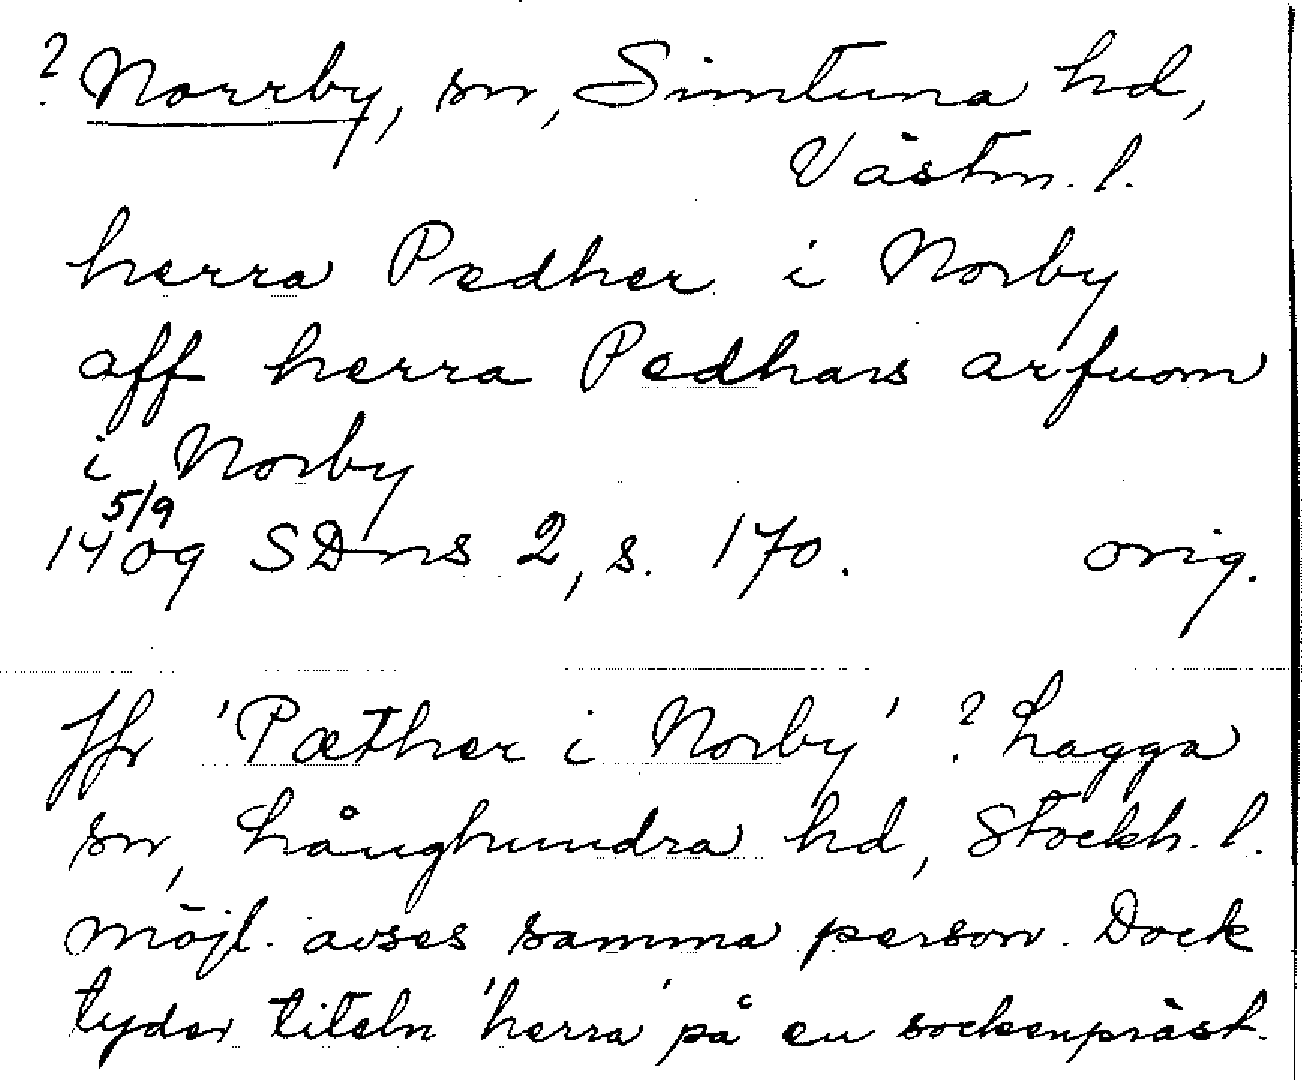 ? Norrby, sn, Simtuna hd,
Västm. l.
herra Pedher i Norby
aff herra Pedhars arfuom
i Norby
5/9
1409 SDns 2, s. 170. orig.
Jfr 'Pæther i Norby' ? Lagga
sn, Långhundra hd, Stockh. l.
möjl. avses samma person. Dock
tyder titeln 'herra' på en sockenpräst.